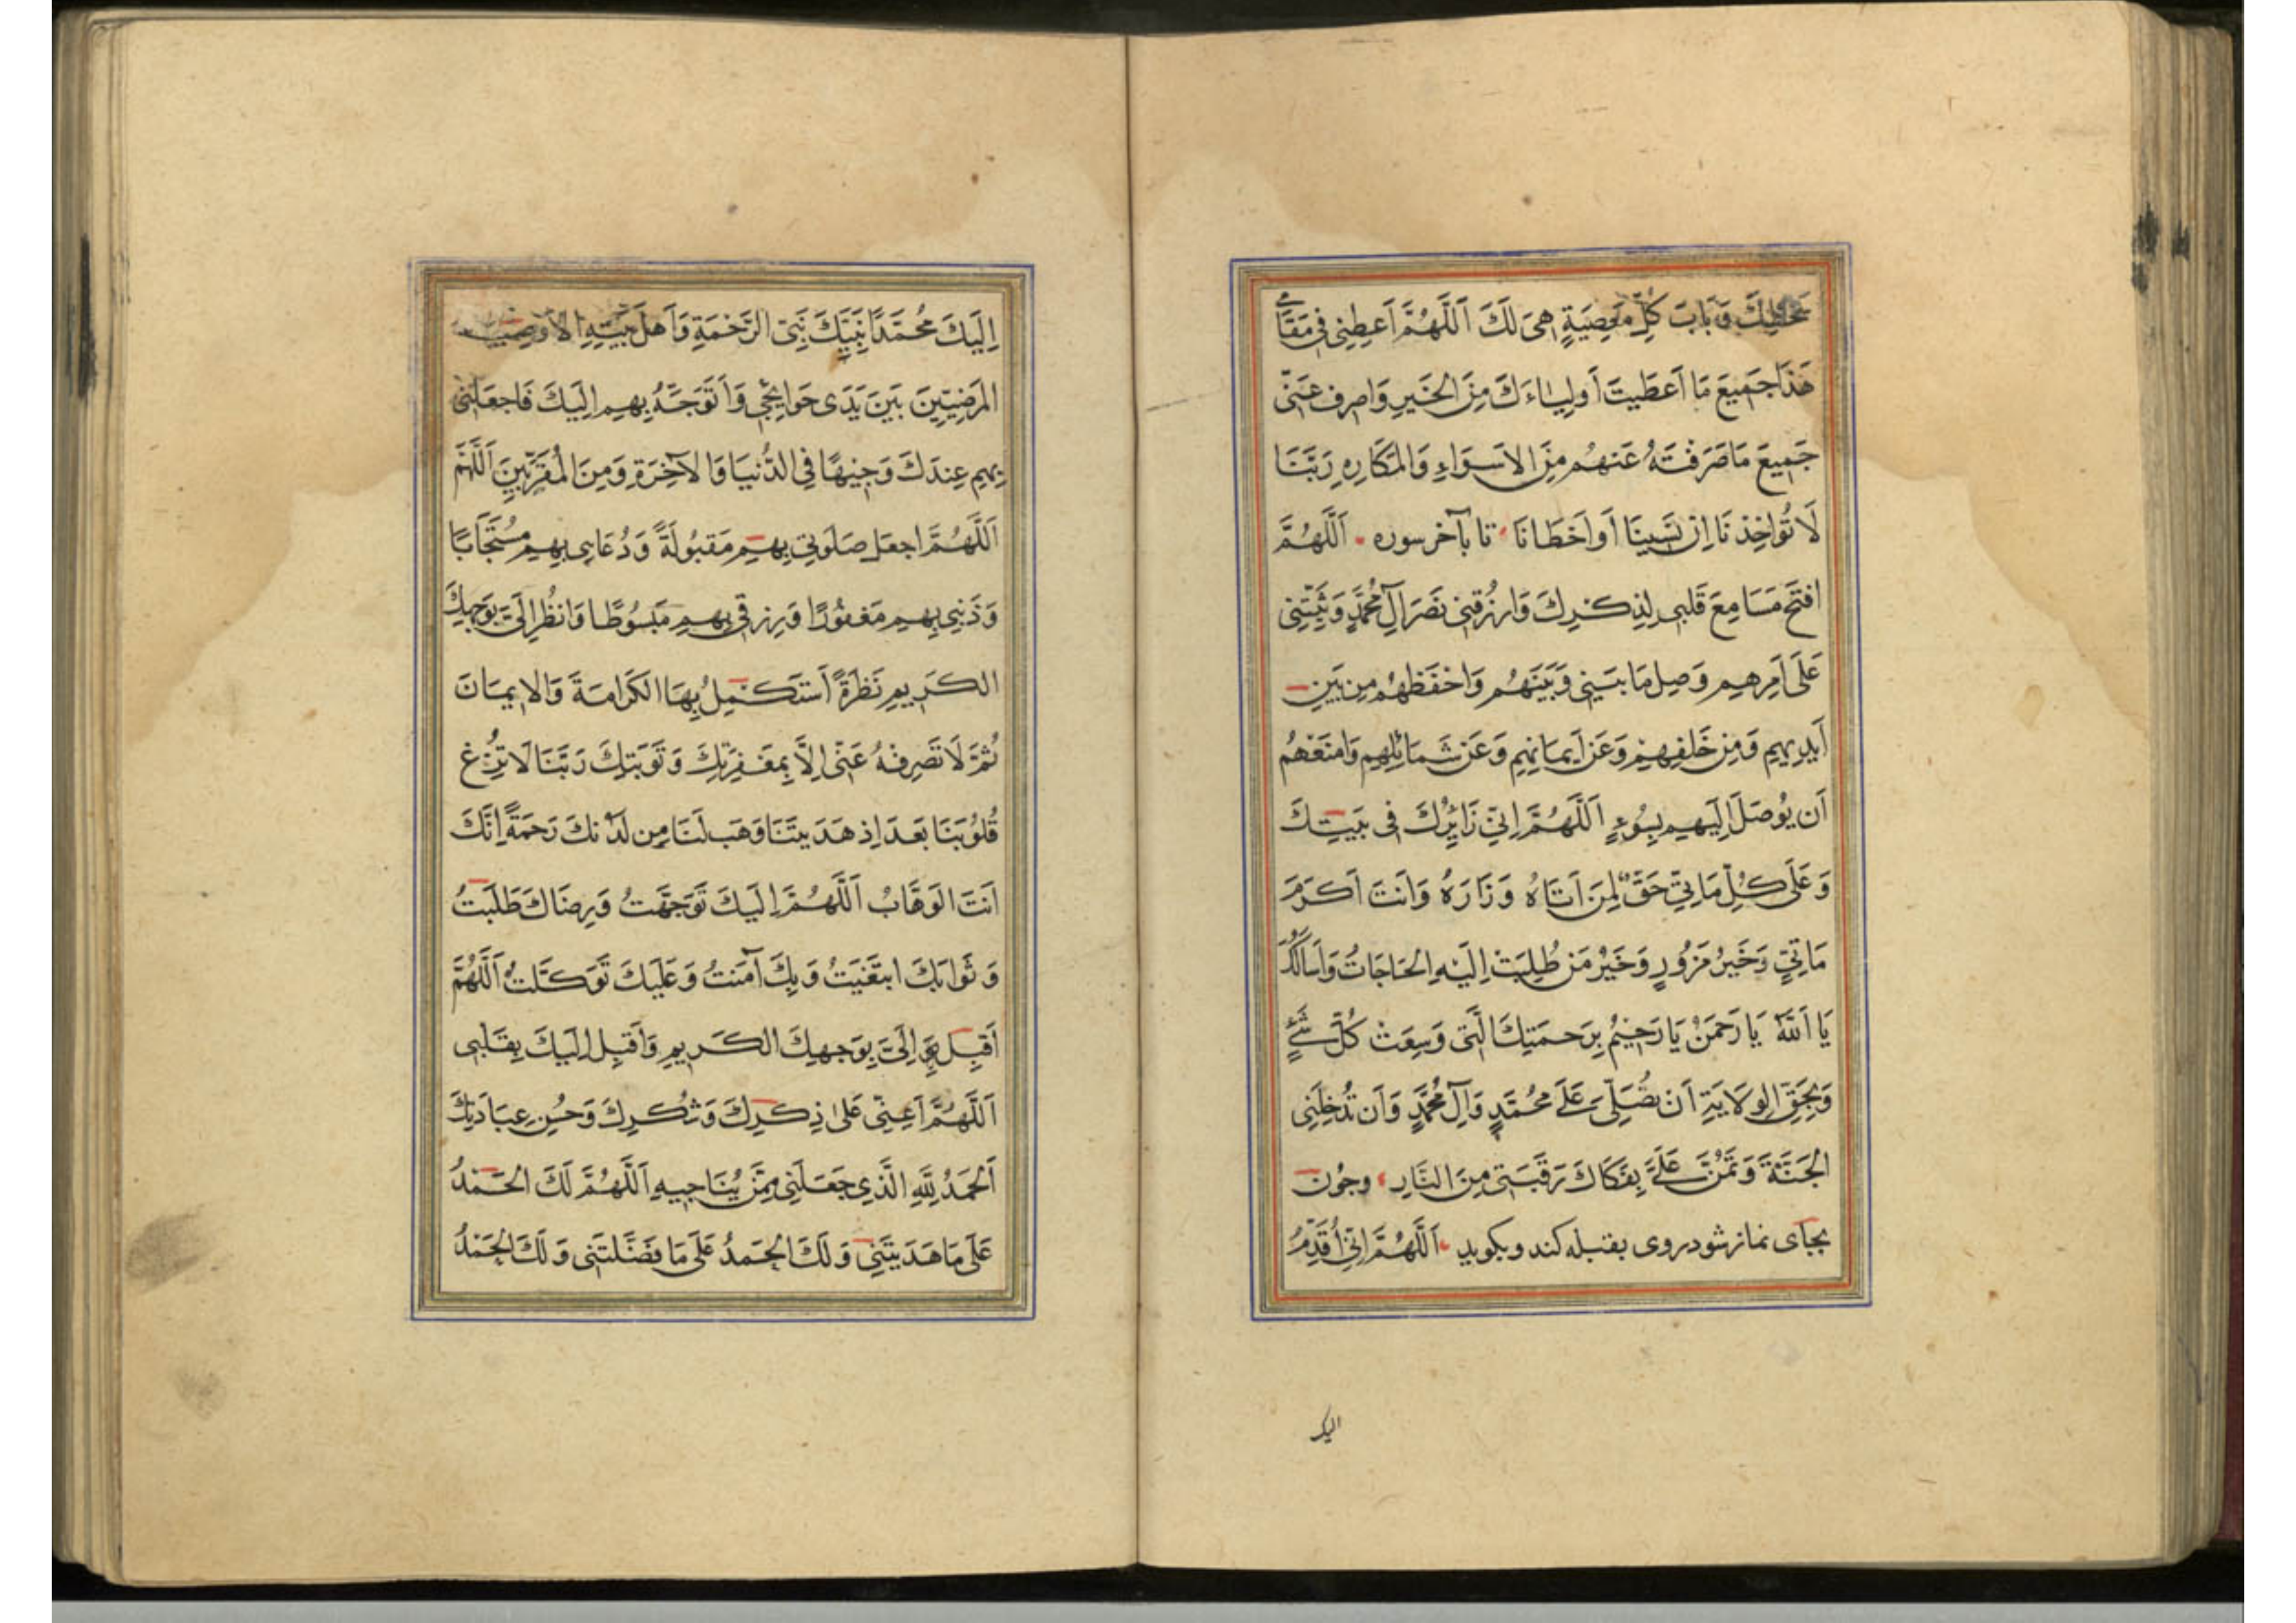 سَخَطِكَ وَبَابَ كُلِّ مَعصِيَةٍ هِىَ لَكَ اَللَّهُمَّ اَعطِنِى فِى مَقَامِى
هَذَا جَمِيعَ مَا اَعطَيتَ اَولِيَاءَكَ مِنَ الخَيرِ وَاصرِف عَنِّى
جَمِيعَ مَا صَرَفتَهُ عَنهُم مِنَ الاَسوَاءِ وَالمَكَارِهِ رَبَّنَا
لَا تُوَاخِذنَا اِن نَسِينَا اَو اَخطَانَا تا بآخر سوره اَللَّهُمَّ
افتَح مَسَامِعَ قَلبِى لِذِكرِكَ وَارزُقنِى نَصرَ آلِ مُحَمَّدٍ وَثَبِّتنِى
عَلَى اَمرِهِم وَصِل مَا بَينِى وَبَينَهُم وَاحفَظهُم مِن بَينِ
اَيدِيهِم وَمِن خَلفِهِم وَعَن اَيمَانِهِم وَعَن شَمَائِلِهِم وَامنَعهُم
اَن يُوصَلَ اِلَيهِم بِسُوءٍ اَللَّهُمَّ اِنِّى زَائِرُكَ فِى بَيتِكَ
وَعَلَى كُلِّ مَاتِىٍّ حَقٌّ لِمَن اَتَاهُ وَزَارَهُ وَاَنتَ اَكرَمُ
مَاتِىٍّ وَخَيرُ مَزُورٍ وَخَيرُ مَن طُلِبَت اِلَيهِ الحَاجَاتُ وَاَسَالُكَ
يَا اَللَّهُ يَا رَحمَنُ يَا رَحِيمُ بِرَحمَتِكَ الَّتِى وَسِعَت كُلَّ شَىءٍ
وَبِحَقِّ الوِلَايَةِ اَن تُصَلِّىَ عَلَى مُحَمَّدٍ وَآلِ مُحَمَّدٍ وَاَن تُدخِلَنِى
الجَنَّةَ وَتَمُنَّ عَلَىَّ بِفَكَاكَ رَقَبَتِى مِنَ النَّارِ وچون
بجاى نماز شود روى بقبله كند وبكويد اَللَّهُمَّ اِنِّى اُقَدِّمُ
اليك
اِلَيكَ مُحَمَّدًا نَبِيَّكَ نَبِىَّ الرَّحمَةِ وَاَهلَ بَيتِهِ الاَوصِيَاءَ
المَرضِيِّينَ بَينَ يَدَى حَوَايِجِى وَاَتَوَجَّهُ بِهِم اِلَيكَ فَاجعَلنِى
بِهِم عِندَكَ وَجِيهًا فِى الدُّنيَا وَالآخِرَةِ وَمِنَ المُقَرَّبِينَ اَللَّهُمَّ
اَللَّهُمَّ اجعَل صَلَوتِى بِهِم مَقبُولَةً وَدُعَايِى بِهِم مُستَجَابًا
وَذَنبِى بِهِم مَغفُورًا وَرِزقِى بِهِم مَبسُوطًا وَانظُر اِلَىَّ بِوَجهِكَ
الكَرِيمِ نَظرَةً اَستَكمِلُ بِهَا الكَرَامَةَ وَالاِيمَانَ
ثُمَّ لَا تَصرِفهُ عَنِّى اِلَّا بِمَغفِرَتِكَ وَتَوبَتِكَ رَبَّنَا لَا تُزِغ
قُلُوبَنَا بَعدَ اِذ هَدَيتَنَا وَهَب لَنَا مِن لَدُنكَ رَحمَةً اِنَّكَ
اَنتَ الوَهَّابُ اَللَّهُمَّ اِلَيكَ تَوَجَّهتُ وَرِضَاكَ طَلَبتُ
وَثَوَابَكَ ابتَغَيتُ وَبِكَ آمَنتُ وَعَلَيكَ تَوَكَّلتُ اَللَّهُمَّ
اَقبِل اِلَىَّ بِوَجهِكَ الكَرِيمِ وَاَقبِل اِلَيكَ بِقَلبِى
اَللَّهُمَّ اَعِنِّى عَلَى ذِكرِكَ وَشُكرِكَ وَحُسنِ عِبَادَتِكَ
اَلحَمدُ لِلَّهِ الَّذِى جَعَلَنِى مِمَّن يُنَاجِيهِ اَللَّهُمَّ لَكَ الحَمدُ
عَلَى مَا هَدَيتَنِى وَلَكَ الحَمدُ عَلَى مَا فَضَّلتَنِى وَلَكَ الحَمدُ